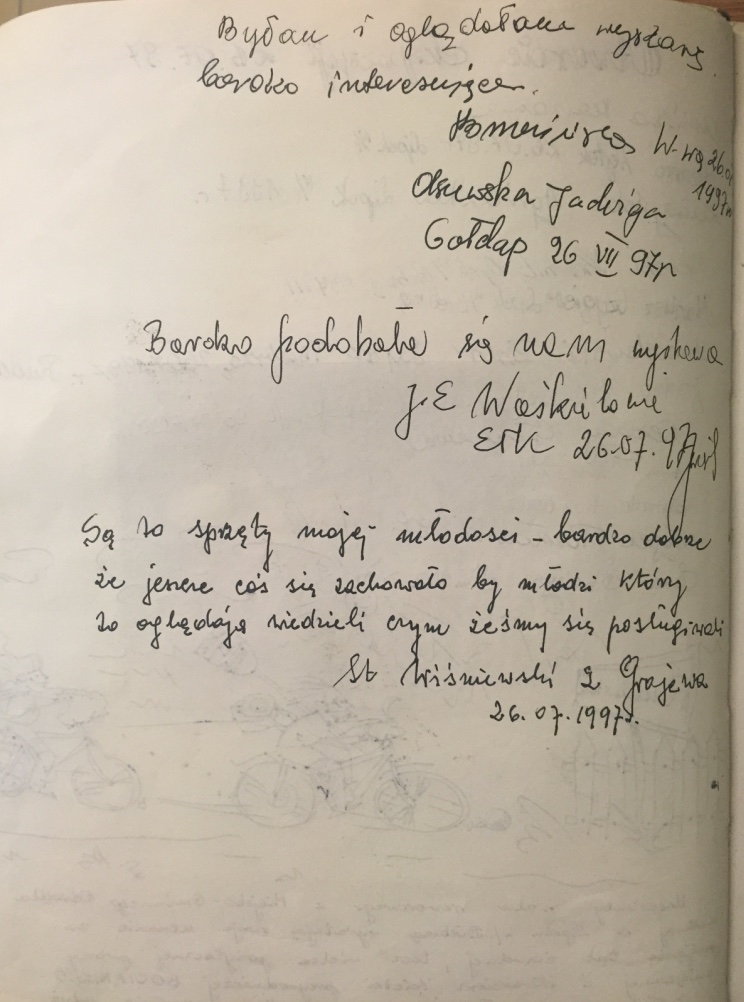 Byłam i oglądałam wystawę
bardzo interesująca.
W-wa 26.07
1997r
Jadwiga
Gołdap 26 VII 97r
Bardzo podobała się nam wystawa
J.E
Ełk 26.07.97
Są to sprzęty mojej młodości - bardzo dobrze
że jeszcze coś się zachowało by młodzi którzy
to oglądają wiedzieli czym żeśmy się posługiwali
St Wiśniewski z Grajewa
26.07.1997r.